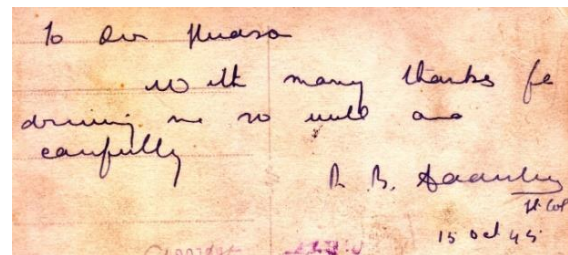 To Dvr Hudson
With many thanks for
driving me so well and
carefully
R. B.
Lt. Col
15 Oct 45